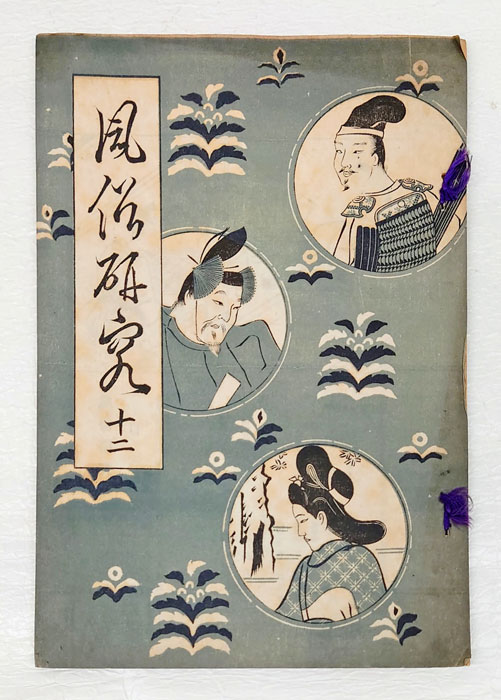 風俗研究
十二